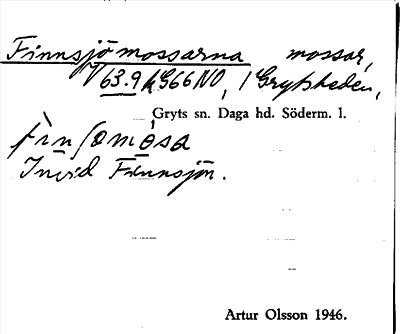 Finnsjömossarna mossar,
V 63.9 k G66 NO, i Grytsheden,
Gryts sn. Daga hd. Söderm. l.
fìnʃømósa
Invid Finnsjön.
Artur Olsson 1946.